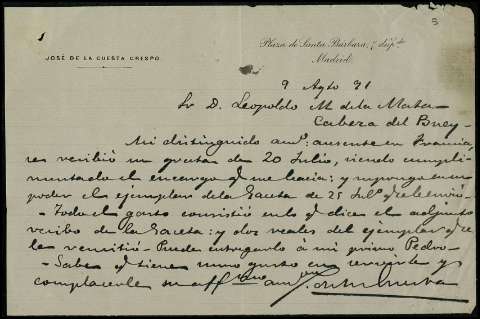 1
5
JOSÉ DE LA CUESTA CRESPO
Plaza de Santa Bárbara, 7 dup.do
Madrid
9 Agto 91
Sr D. Leopoldo M. de la Mata
Cabeza del Buey-
Mi distinguido amo: ausente en Francia,
recibió su grata de 20 Julio, siendo cumpli-
mentado el encargo q me hacia: y supongo en su
poder el ejemplar de la Gaceta de 25 Julo
-Todo el gasto consistió en lo q dice el adjunto
recibo de la Gaceta: y dos reales del ejemplar q se
le remitió - Puede entregarlo á mi primo Pedro-
-Sabe q tiene sumo gusto en servirle y
complacerle su affmo amo J. de la Cuesta